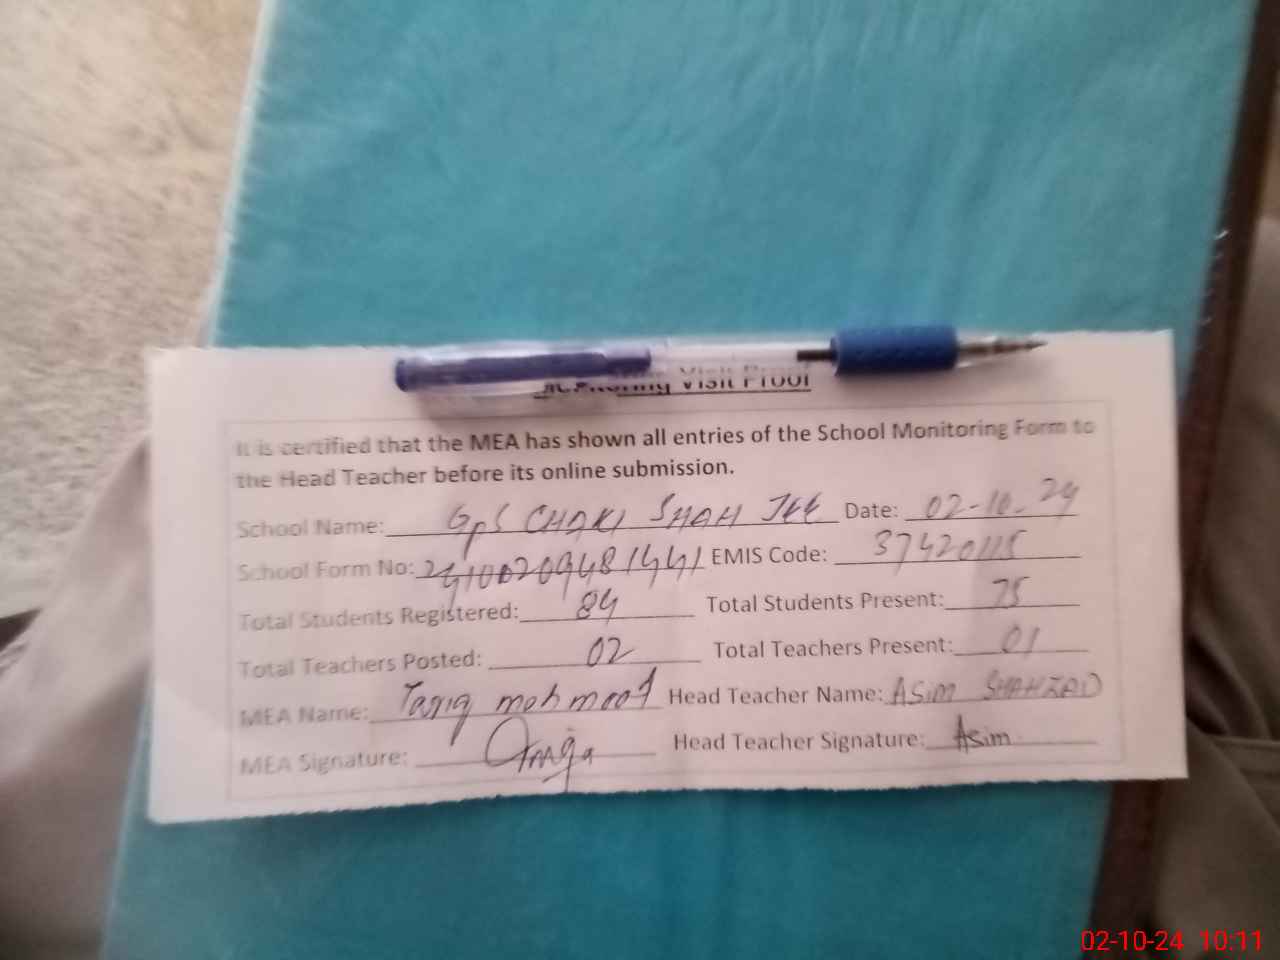 Monitoring Visit Proof
It is certified that the MEA has shown all entries of the School Monitoring Form to
the Head Teacher before its online submission.
School Name: GPS CHAKI SHAH JEE Date: 02-10-24
School Form No: 24100209481441 EMIS Code: 37420115
Total Students Registered: 84 Total Students Present: 75
Total Teachers Posted: 02 Total Teachers Present: 01
MEA Name: Tariq mehmood Head Teacher Name: ASiM SHAHZAD
MEA Signature: Head Teacher Signature: Asim
02-10-24 10:11